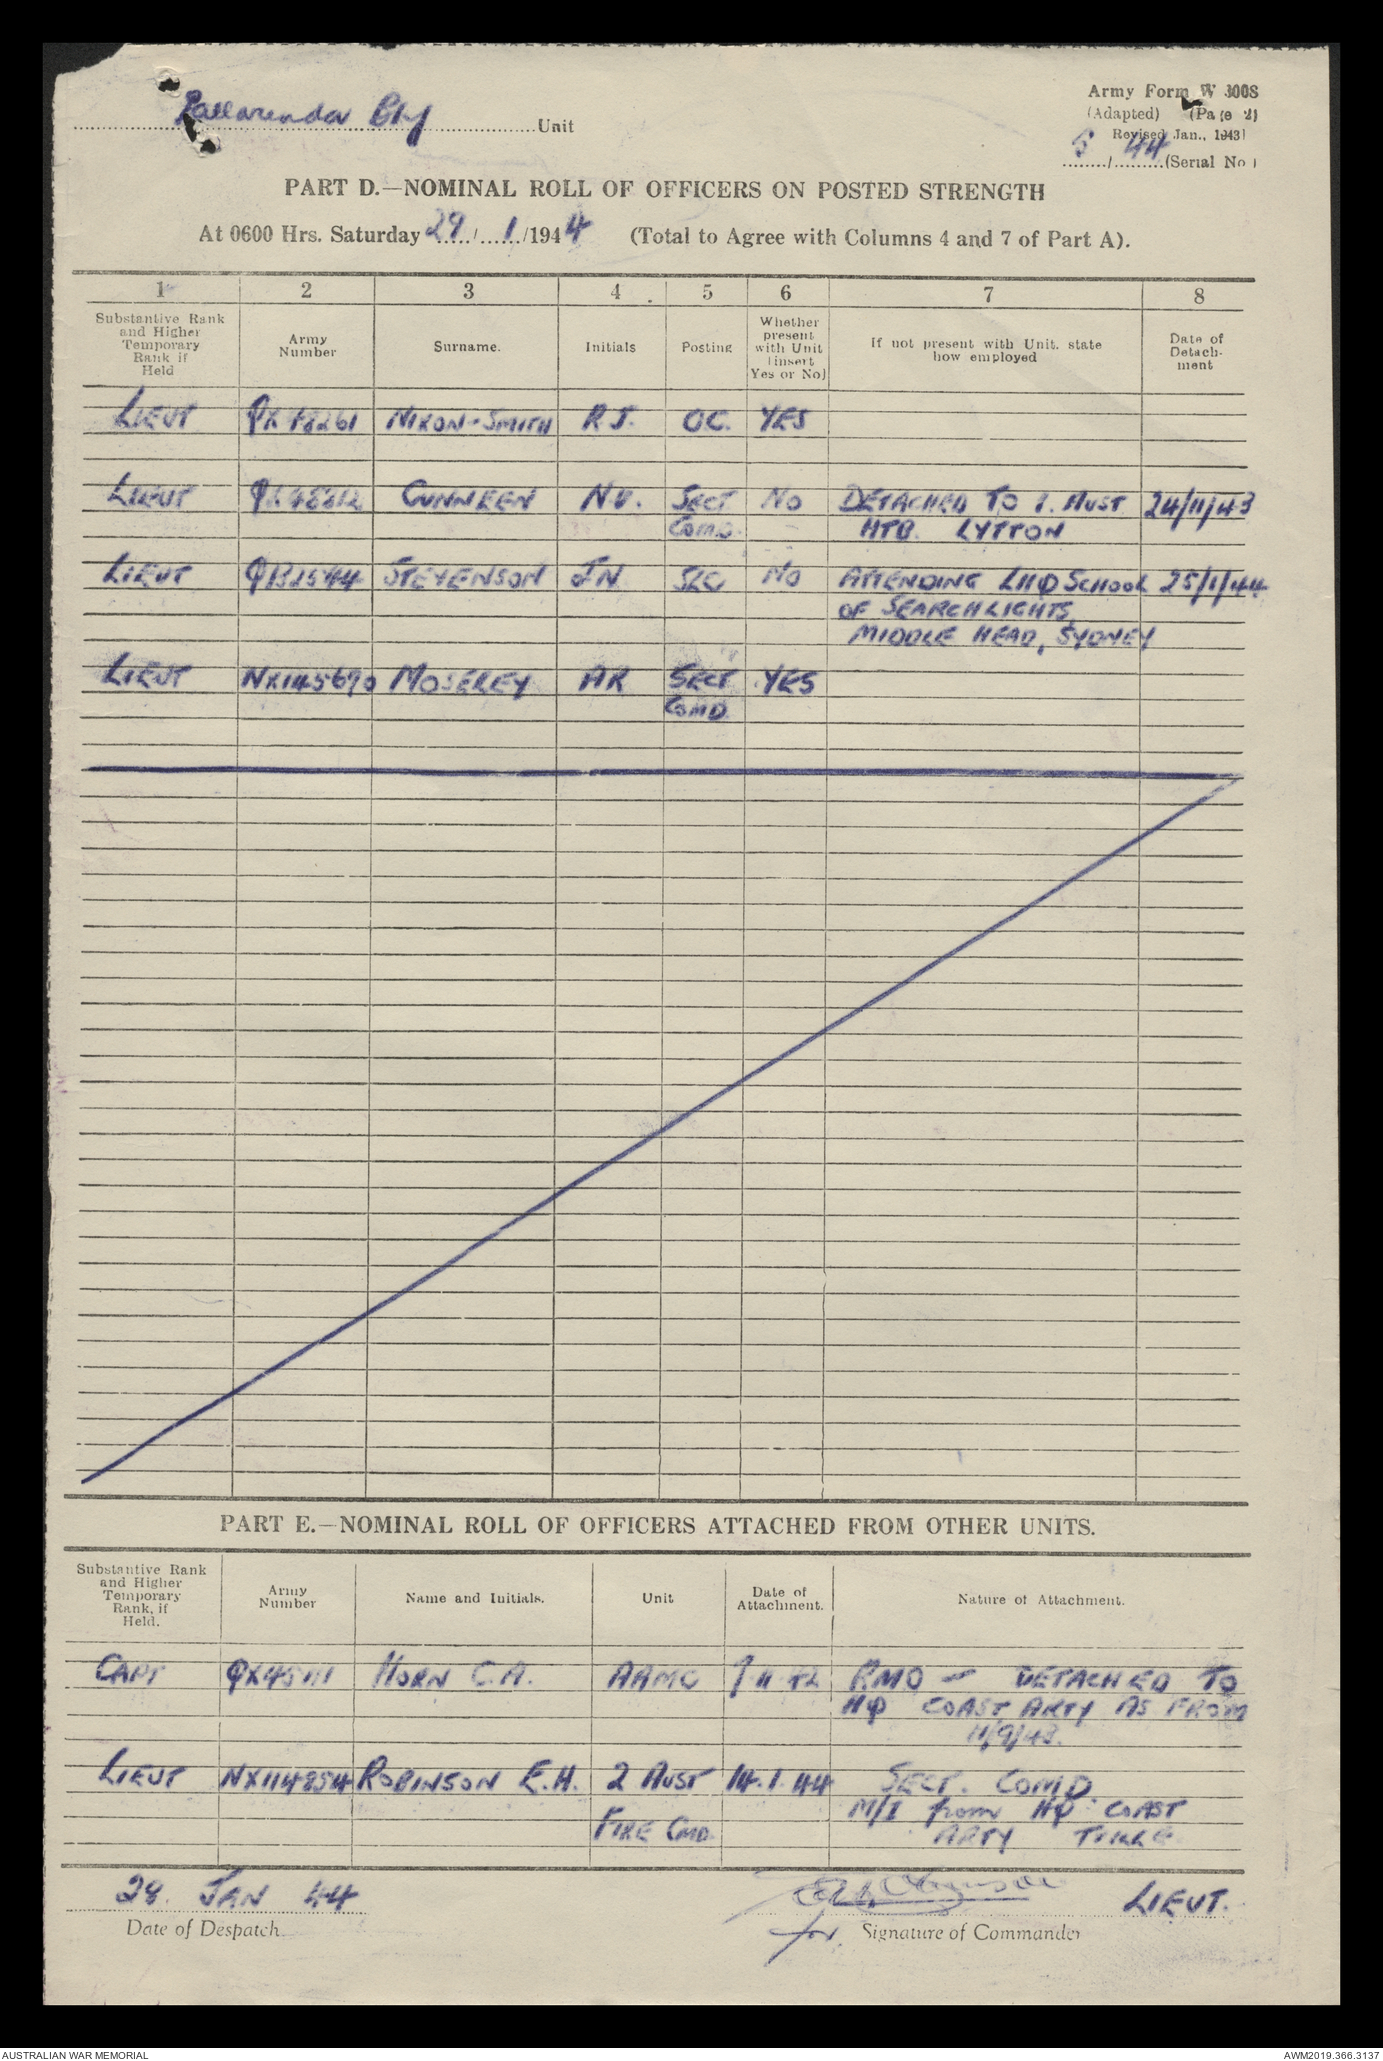 Pallarenda Bty Unit
Army Form W 3008
(Adapted) (Page 2)
Revised Jan., 1943)
5/44 (Serial No.)
PART D.—NOMINAL ROLL OF OFFICERS ON POSTED STRENGTH
At 0600 Hrs. Saturday 29/1/1944 (Total to Agree with Columns 4 and 7 of Part A).
1 2 3 4 5 6 7 8
Substantive Rank and Higher Temporary Rank if Held
Army Number
Surname.
Initials
Posting
Whether present with Unit (insert Yes or No)
If not present with Unit, state how employed
Date of Detachment
LIEUT QX48261 NIXON-SMITH R.J. OC. YES
LIEUT CUNNEEN SECT NO DETACHED TO 1. AUST 24/11/43
COMD. HTB. LYTTON
LIEUT STEVENSON JN SLO NO ATTENDING LHQ SCHOOL 25/1/44
OF SEARCHLIGHTS,
MIDDLE HEAD, SYDNEY
LIEUT NX145670 MOSEREY AR SECT YES
COMD
PART E.—NOMINAL ROLL OF OFFICERS ATTACHED FROM OTHER UNITS.
Substantive Rank and Higher Temporary Rank, if Held.
Army Number
Name and Initials.
Unit
Date of Attachment.
Nature of Attachment.
CAPT HORN C.A. AAMC RMO — DETACHED TO
HQ COAST ARTY AS FROM
11/9/43.
LIEUT NX114854 ROBINSON E.H. 2 AUST 14.1.44 SECT. COMD
M/I from HQ COAST
FIRE CMD. ARTY
28 JAN 44 LIEUT.
Date of Despatch for Signature of Commander
AUSTRALIAN WAR MEMORIAL
AWM2019.366.3137